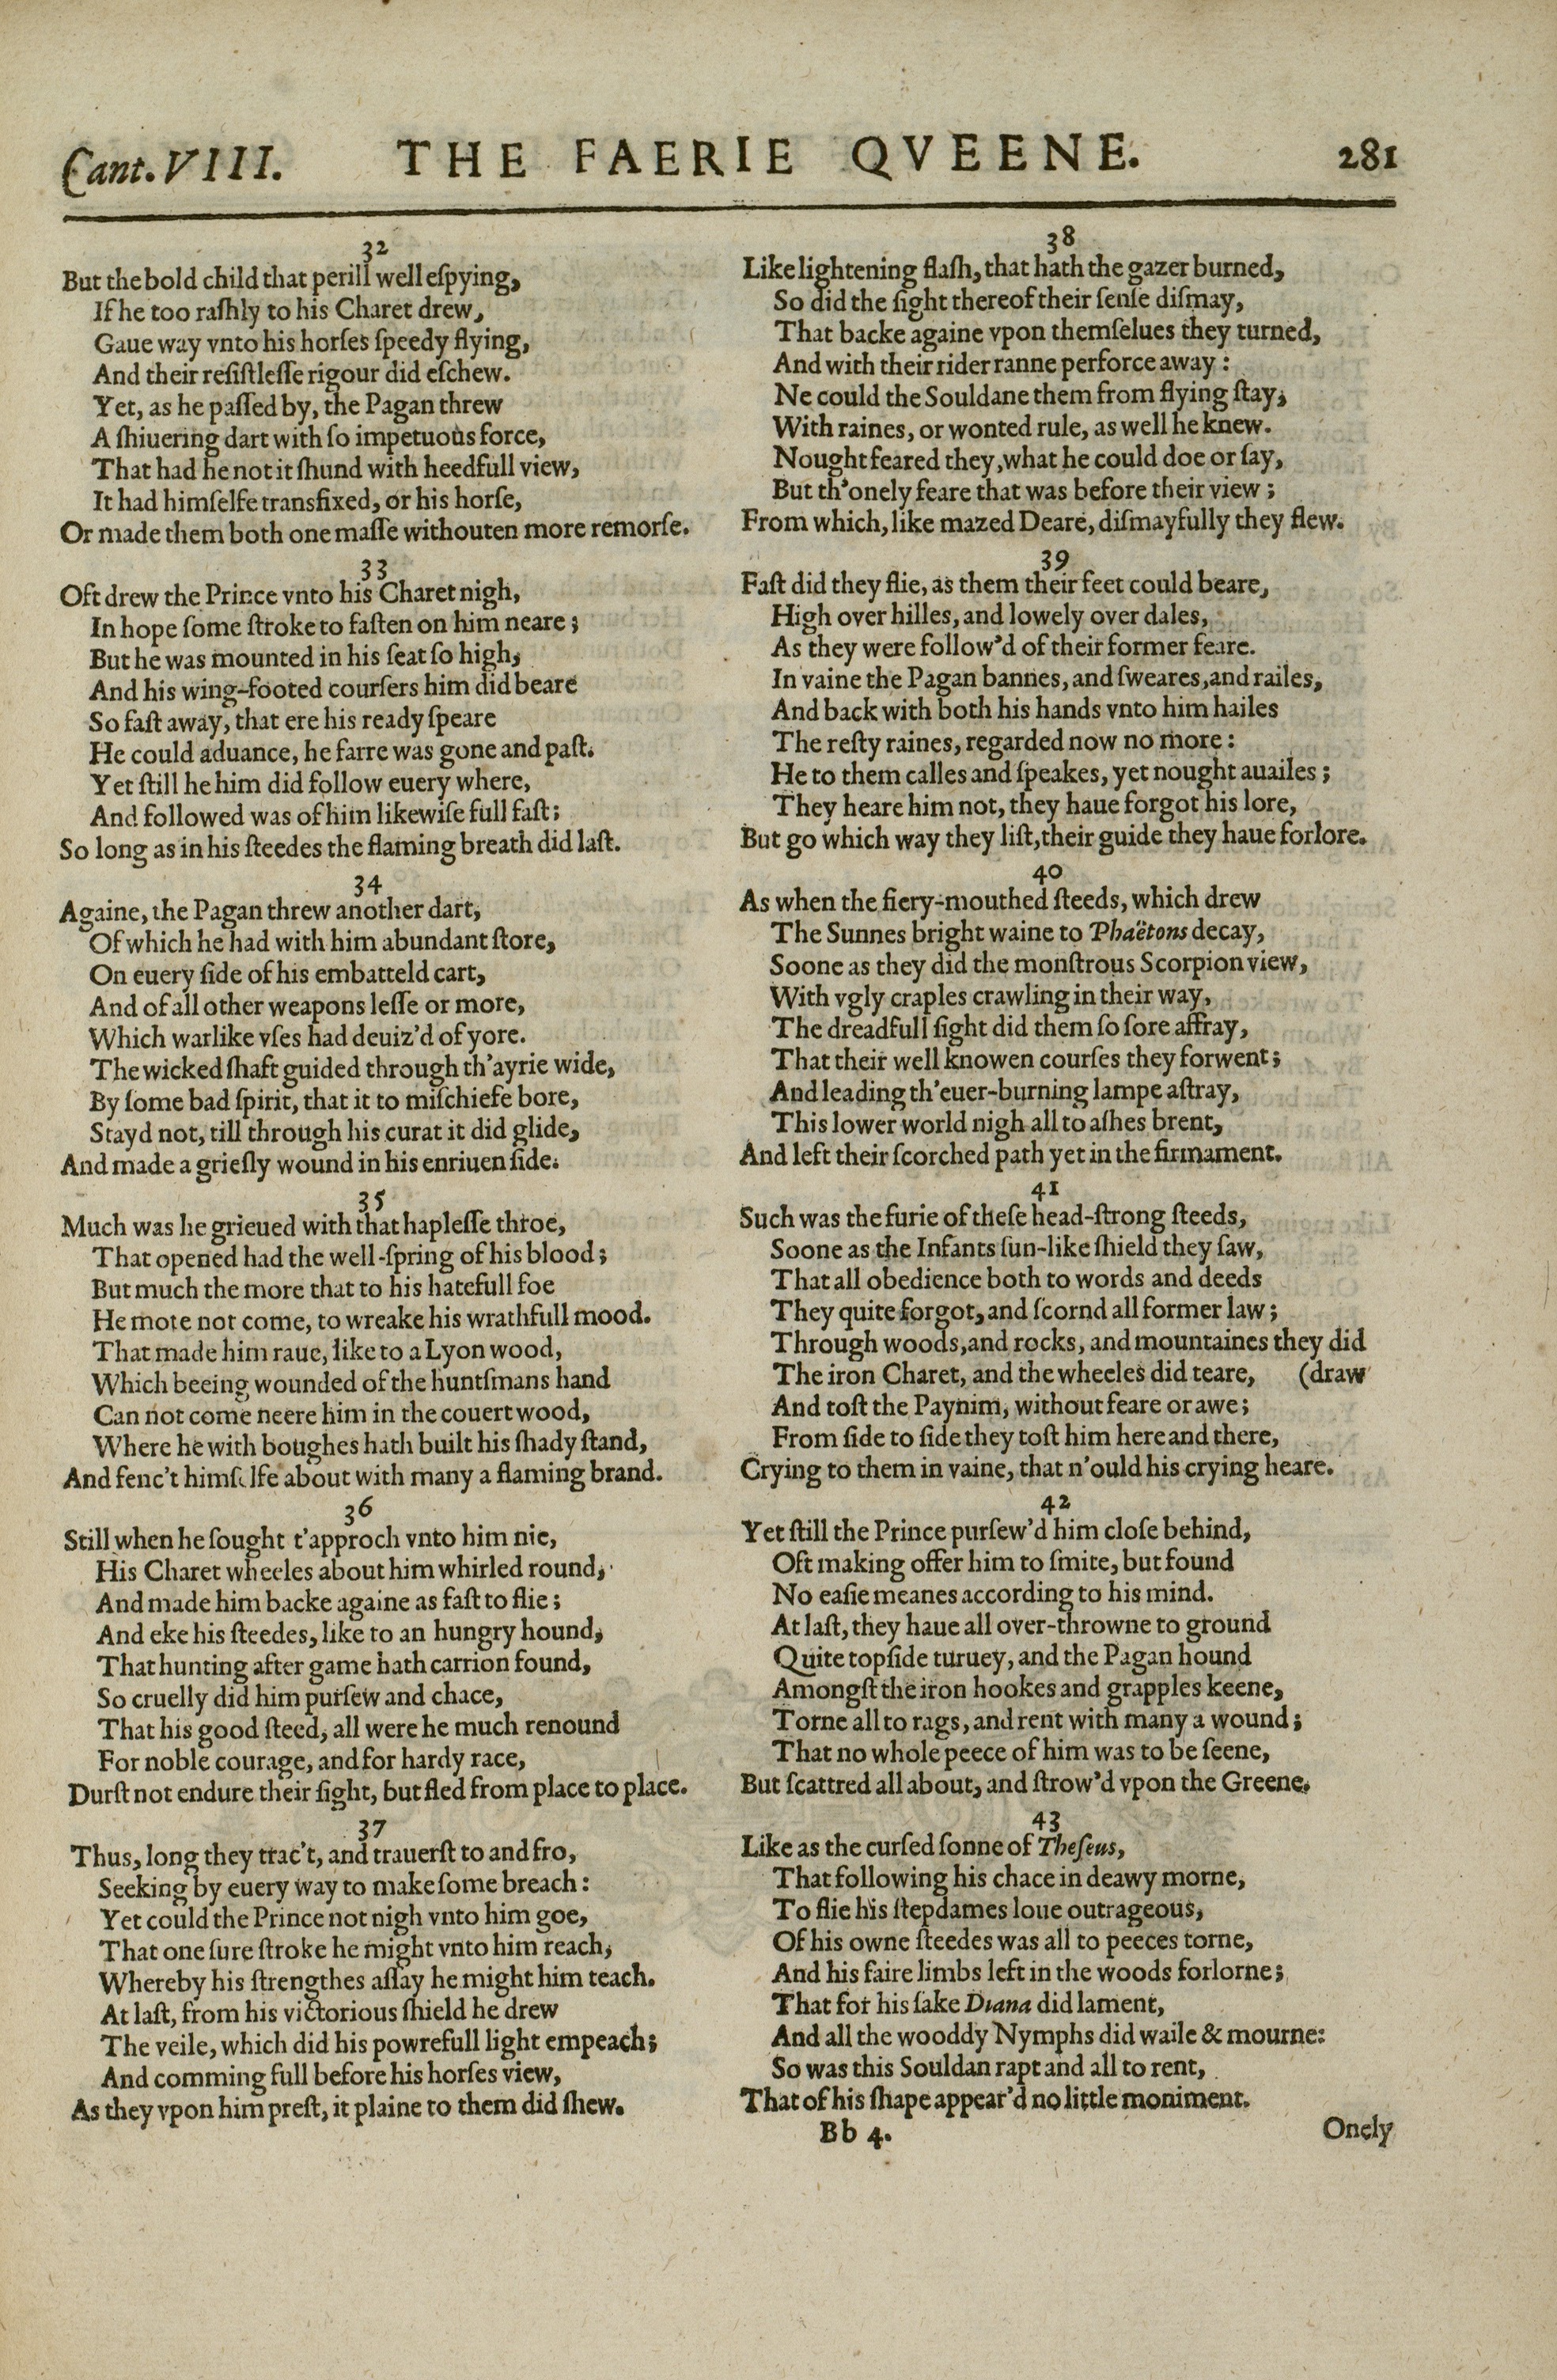 Cant. VIII. THE FAERIE QVEENE. 281
32
But the bold child that perill well eſpying,
If he too raſhly to his Charet drew,
Gaue way vnto his horſes ſpeedy flying,
And their reſiſtleſſe rigour did eſchew.
Yet, as he paſſed by, the Pagan threw
A ſhiuering dart with ſo impetuous force,
That had he not it ſhund with heedfull view,
It had himſelfe transfixed, or his horſe,
Or made them both one maſſe withouten more remorſe.
33
Oft drew the Prince vnto his Charet nigh,
In hope ſome ſtroke to faſten on him neare;
But he was mounted in his ſeat ſo high,
And his wing-footed courſers him did beare
So faſt away, that ere his ready ſpeare
He could aduance, he farre was gone and paſt.
Yet ſtill he him did follow euery where,
And followed was of him likewiſe full faſt;
So long as in his ſteedes the flaming breath did laſt.
34
Againe, the Pagan threw another dart,
Of which he had with him abundant ſtore,
On euery ſide of his embatteld cart,
And of all other weapons leſſe or more,
Which warlike vſes had deuiz'd of yore.
The wicked ſhaft guided through th'ayrie wide,
By ſome bad ſpirit, that it to miſchiefe bore,
Stayd not, till through his curat it did glide,
And made a grieſly wound in his enriuen ſide.
35
Much was he grieued with that hapleſſe throe,
That opened had the well-ſpring of his blood;
But much the more that to his hatefull foe
He mote not come, to wreake his wrathfull mood.
That made him raue, like to a Lyon wood,
Which beeing wounded of the huntſmans hand
Can not come neere him in the couert wood,
Where he with boughes hath built his ſhady ſtand,
And fenc't himſelfe about with many a flaming brand.
36
Still when he ſought t'approch vnto him nie,
His Charet wheeles about him whirled round,
And made him backe againe as faſt to flie;
And eke his ſteedes, like to an hungry hound,
That hunting after game hath carrion found,
So cruelly did him purſew and chace,
That his good ſteed, all were he much renound
For noble courage, and for hardy race,
Durſt not endure their ſight, but fled from place to place.
37
Thus, long they trac't, and trauerſt to and fro,
Seeking by euery way to make ſome breach:
Yet could the Prince not nigh vnto him goe,
That one ſure ſtroke he might vnto him reach,
Whereby his ſtrengthes aſſay he might him teach.
At laſt, from his victorious ſhield he drew
The veile, which did his powrefull light empeach;
And comming full before his horſes view,
As they vpon him preſt, it plaine to them did ſhew.
38
Like lightening flaſh, that hath the gazer burned,
So did the ſight thereof their ſenſe diſmay,
That backe againe vpon themſelues they turned,
And with their rider ranne perforce away:
Ne could the Souldane them from flying ſtay,
With raines, or wonted rule, as well he knew.
Nought feared they, what he could doe or ſay,
But th'onely feare that was before their view;
From which, like mazed Deare, diſmayfully they flew.
39
Faſt did they flie, as them their feet could beare,
High over hilles, and lowely over dales,
As they were follow'd of their former feare.
In vaine the Pagan bannes, and ſweares, and railes,
And back with both his hands vnto him hailes
The reſty raines, regarded now no more:
He to them calles and ſpeakes, yet nought auailes;
They heare him not, they haue forgot his lore,
But go which way they liſt, their guide they haue forlore.
40
As when the fiery-mouthed ſteeds, which drew
The Sunnes bright waine to Phaëtons decay,
Soone as they did the monſtrous Scorpion view,
With vgly craples crawling in their way,
The dreadfull ſight did them ſo ſore affray,
That their well knowen courſes they forwent;
And leading th'euer-burning lampe aſtray,
This lower world nigh all to aſhes brent,
And left their ſcorched path yet in the firmament.
41
Such was the furie of theſe head-ſtrong ſteeds,
Soone as the Infants ſun-like ſhield they ſaw,
That all obedience both to words and deeds
They quite forgot, and ſcornd all former law;
Through woods, and rocks, and mountaines they did
The iron Charet, and the wheeles did teare, (draw
And toſt the Paynim, without feare or awe;
From ſide to ſide they toſt him here and there,
Crying to them in vaine, that n'ould his crying heare.
42
Yet ſtill the Prince purſew'd him cloſe behind,
Oft making offer him to ſmite, but found
No eaſie meanes according to his mind.
At laſt, they haue all over-throwne to ground
Quite topſide turuey, and the Pagan hound
Amongſt the iron hookes and grapples keene,
Torne all to rags, and rent with many a wound;
That no whole peece of him was to be ſeene,
But ſcattred all about, and ſtrow'd vpon the Greene.
43
Like as the curſed ſonne of Theſeus,
That following his chace in deawy morne,
To flie his ſtepdames loue outrageous,
Of his owne ſteedes was all to peeces torne,
And his faire limbs left in the woods forlorne;
That for his ſake Diana did lament,
And all the wooddy Nymphs did waile & mourne:
So was this Souldan rapt and all to rent,
That of his ſhape appear'd no little moniment.
Bb 4. Onely